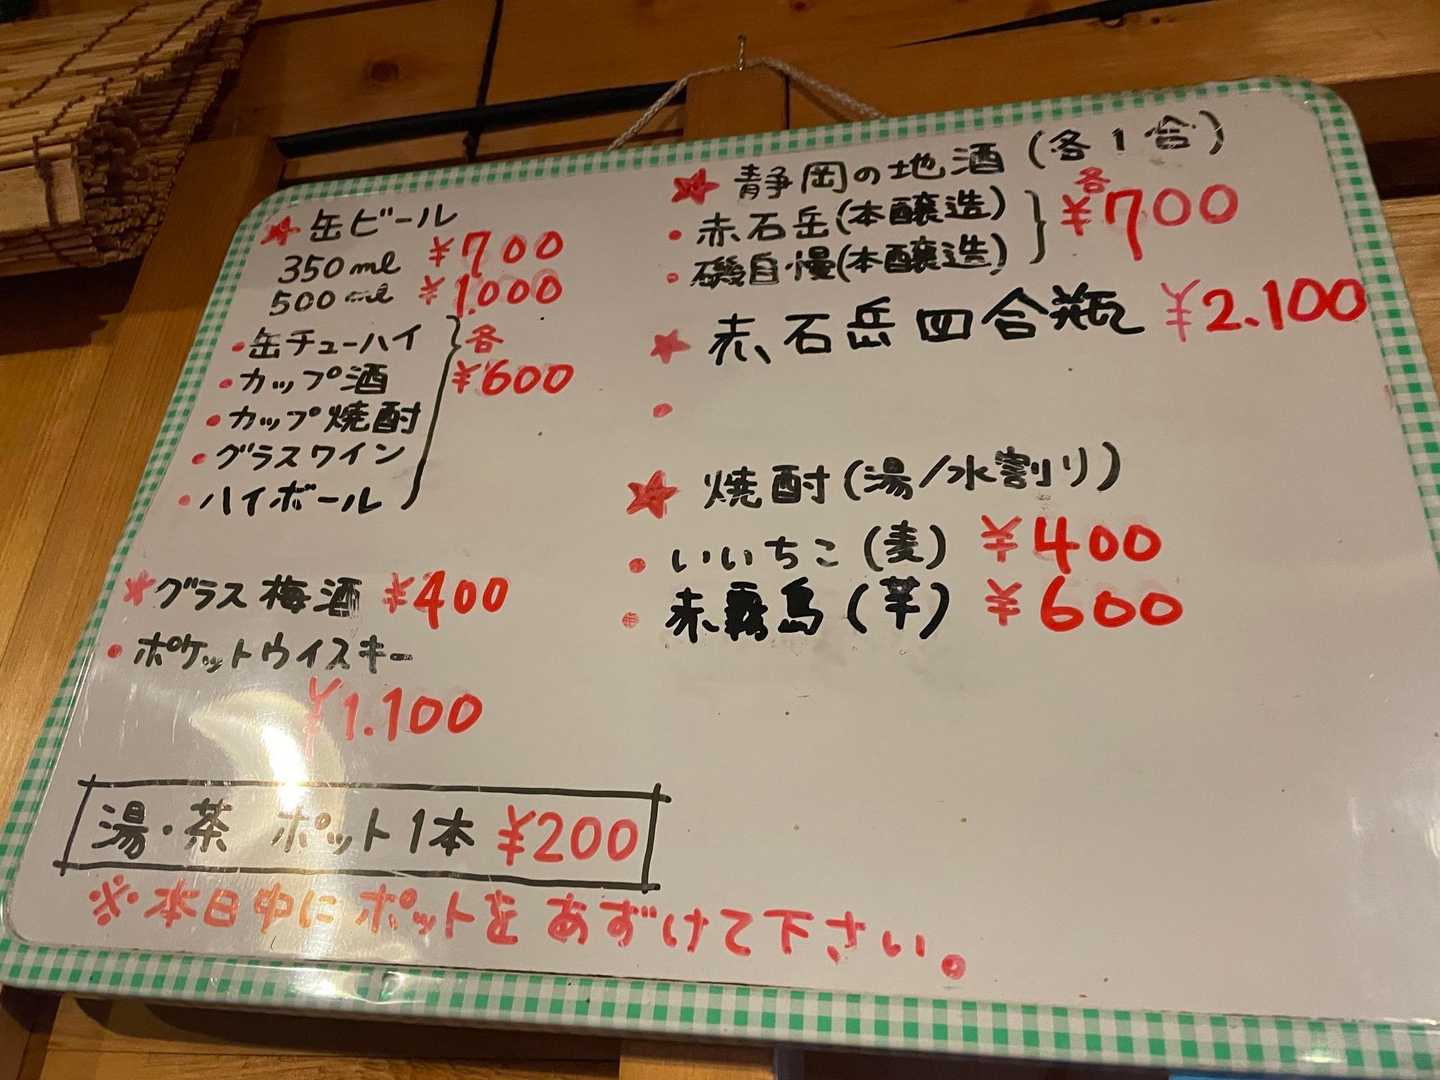 ★缶ビール
350ml ¥700
500ml ¥1.000
・缶チューハイ
・カップ酒
・カップ焼酎
・グラスワイン
・ハイボール
各
¥600
★グラス梅酒 ¥400
・ポケットウイスキー
¥1.100
湯・茶 ポット1本 ¥200
※本日中にポットをあずけて下さい。
★静岡の地酒(各1合)
・赤石岳(本醸造)
・磯自慢(本醸造)
各
¥700
★赤石岳四合瓶 ¥2.100
★焼酎(湯/水割り)
・いいちこ(麦) ¥400
・赤霧島(芋) ¥600